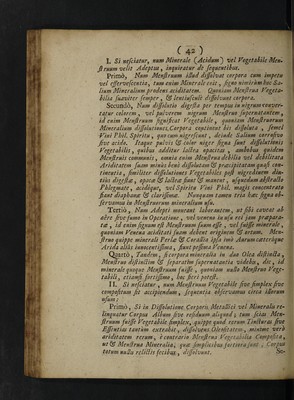 ( 42 )
I. Si nesciatur, num Minerale (Acidum) vel Vegetabile Men-
struum velit Adeptus, inquiratur ab sequentibus.
Primò, Num Menstruum illud dissolvat corpora cum impetu
vel effervescentia, tum enim Minerale erit, signo nimirum hoc Sa-
lium Mineralium prodens aciditatem. Quoniam Menstrua Vegeta-
bilia suaviter semper, & lentiusculè dissolvunt corpora.
Secundò, Num dissolutio digesta per tempus in nigrum conver-
tatur colorem, vel pulverem nigrum Menstruo supernatantem,
id enim Menstruum significat Vegetabile, quoniam Menstruorum
Mineralium dissolutiones, Corpora opactiones bis dissoluta, semel
Vini Phil. Spiritu, quorum nigrefiunt, deinde Salium corrosivo
sive acido. Itaque pulvis & color niger signa sunt dissolutionis
Vegetabilis, quibus additur solita opacitas, ambobus quidem
Menstruis communis, omnia enim Menstrua debilia vel debilitata
Aciditatem suam minùs benè dissolidam & præcipitatam quasi con-
tinentia, similiter dissolutiones Vegetabiles post nigredinem diu-
tiùs digestæ, opacæ & lacteæ fiunt & manent, usquedum abstracto
Phlegmate, acidique, vel Spiritu Vini Phil. magis concentrato
fiant diaphanæ & clarissimæ. Nunquam tamen tria hæc signa ob-
servamus in Menstruorum mineralium usu.
Tertiò, Num Adepti moneant laborantem, ut sibi caveat ab
odore sive fumo in Operatione, vel veneno in usu rei jam præpara-
tæ, id enim signum est Menstruum suum esse, vel fuisse minerale,
quoniam Venena aciditati suum debent originem & ortum. Men-
strua quippe mineralia Perlæ & Corallia ipso imò Aurum cæteraque
Acida aliàs innocentissima, sunt pessima Venena.
Quartò, Tandem, si corpora mineralia in duo Olea distincta,
Menstruo distinctim & separatim supernatantia viderit, &c., id
minerale quoque Menstruum fuisse, quoniam nullo Menstruo Vege-
tabili, etiamsi fortissimo, hoc fieri potest.
II. Si nesciatur, num Menstruum Vegetabile sive simplex sive
compositum sit accipiendum, sequentia observamus circa illorum
usum:
Primò, Si in Dissolutione Corporis Metallici vel Mineralis re-
linquatur Corpus Album sive residuum aliquod; tum scias Men-
struum fuisse Vegetabile simplex, quippe quod rerum Tincturas sive
Essentias tantùm extrahit, dissolvens Oleositatem, minimè verò
ariditatem rerum, è contrario Menstrua Vegetabilia Composita,
ut & Menstrua Mineralia, quæ simplicibus potentiora sunt, Corpus
totum nullo relicto fecibus, dissolvunt.